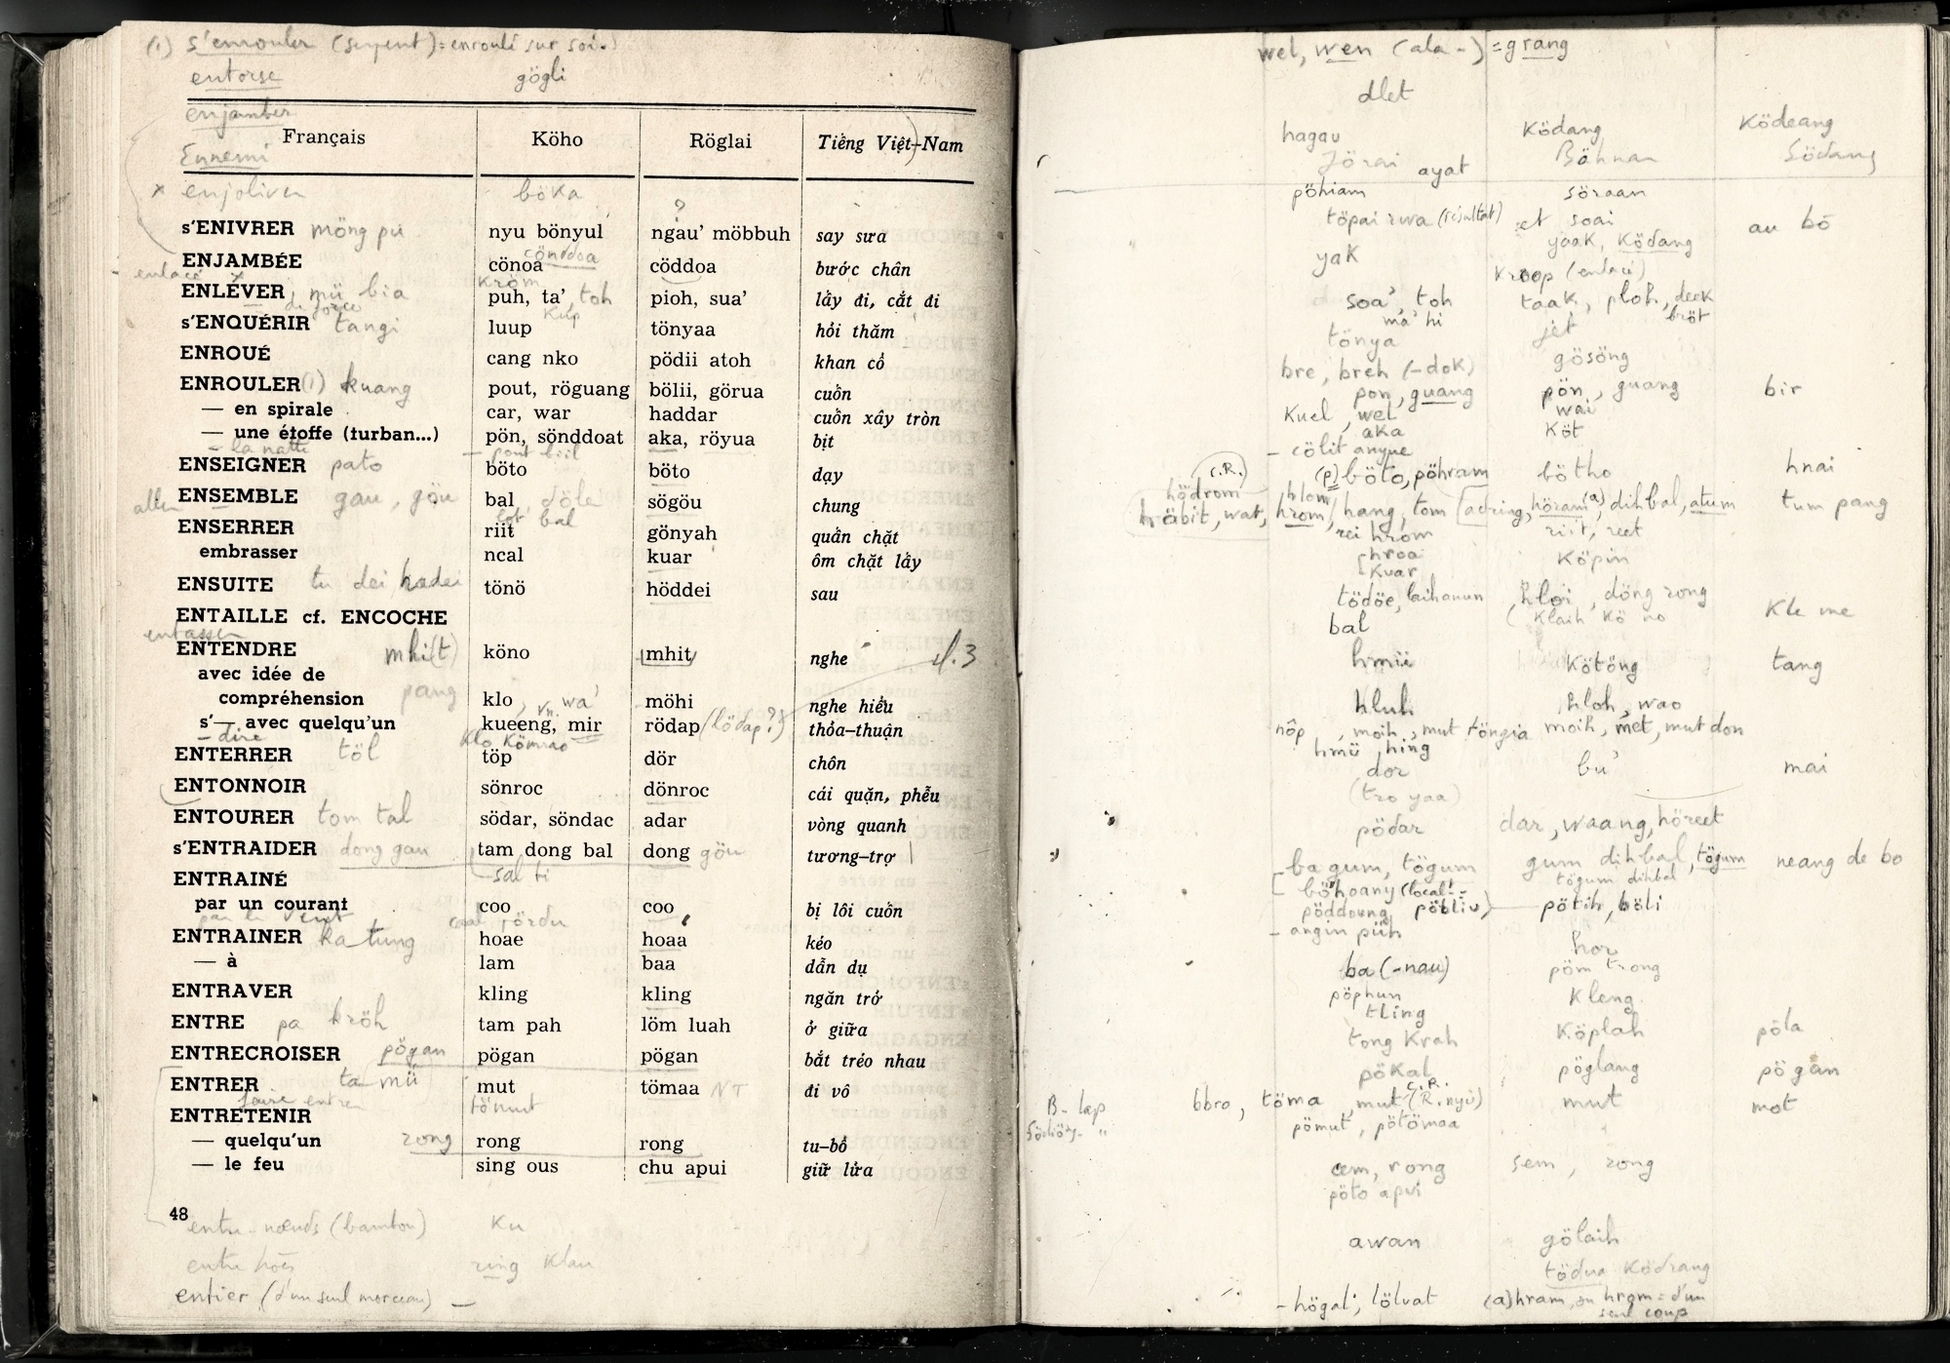 (1) s'enrouler (serpent) = enroulé sur soi.
entorse gögli
enjamber
Français Köho Röglai Tiếng Việt-Nam
Ennemi
× enjoliver böka
s'ENIVRER möng pu nyu bönyul ngau' möbbuh say sưa
ENJAMBÉE cönoa cönddoa cöddoa bước chân
enlacé kröm
ENLÉVER, mü bia puh, ta', toh pioh, sua' lấy đi, cắt đi
de force Kup
s'ENQUÉRIR tangi luup tönyaa hỏi thăm
ENROUÉ cang nko pödii atoh khan cổ
ENROULER (1) kuang pout, röguang bölii, görua cuốn
— en spirale car, war haddar cuốn xây tròn
— une étoffe (turban...) pön, sönddoat aka, röyua bịt
— la natte — pout biil
ENSEIGNER pato böto böto dạy
ENSEMBLE gau, göu bal, döle sögöu chung
aller bal
ENSERRER riit gönyah quấn chặt
embrasser ncal kuar ôm chặt lấy
ENSUITE tu dei hadei tönö höddei sau
ENTAILLE cf. ENCOCHE
entasser
ENTENDRE mhi(t) köno mhit nghe
avec idée de
compréhension pang klo, wa' möhi nghe hiểu
s'— avec quelqu'un kueeng, mir rödap (lödap?) thỏa-thuận
— dire Klo Kömrao
ENTERRER töl töp dör chôn
ENTONNOIR sönroc dönroc cái quặn, phễu
ENTOURER tom tal södar, söndac adar vòng quanh
s'ENTRAIDER dong gau tam dong bal dong göu tương-trợ
sal ti
ENTRAINÉ
par un courant coo coo bị lôi cuốn
par le vent
ENTRAINER ka tung hoae hoaa kéo
— à lam baa dẫn dụ
ENTRAVER kling kling ngăn trở
ENTRE pa kröh tam pah löm luah ở giữa
ENTRECROISER pögan pögan pögan bắt tréo nhau
ENTRER ta mü mut tömaa NT đi vô
faire entrer tömut
ENTRETENIR
— quelqu'un rong rong rong tu-bổ
— le feu sing ous chu apui giữ lửa
48
entre-nœuds (bambou) Ku
ring Klau
entier (d'un seul morceau) —
wel, wen (ala -) = grang
dlet
hagau Ködang Ködeang
Jörai ayat Böhnan Södang
pöhiam söraan
töpai rwa (résultat) et soai au bö
yaak, Ködang
yak
kroop (enlacé)
soa', toh taak, ploh, deek
ma' hi bröt
tönya jet
gösöng
bre, breh (-dok)
pon, guang pön, guang bir
Kuel, wel wai
aka Köt
— cölit anyue
(C.R.) (p)böto, pöhram bötho hnai
hödrom hlom
bit, wat, hrom / hang, tom höram (a) dihbal, atum tum pang
rei hrom riit, reet
hroa Köpin
Kuar
tödöe, laihanun hloi, döng rong
bal Klaih Kö no Kle me
hmii Kötöng tang
hluh hloh, wao
nôp, moih, mut töngia moih, met, mut don
hmü, hing
dor bu' mai
(tro yaa)
pödar dar, waang, höreet
ba gum, tögum gum dihbal, tögum neang de bo
tögum dihbal
böhoany (local)
pöddoung pöbliu) pötih, böli
— angin püh
hor
ba (-nau) pöm trong
pöphun Kleng
tling
tong Krah Köplah pöla
pökal pöglang pögan
C.R.
B- læp bbro, töma, mut (R. nyü) mut mot
pömut, pötömaa
cem, rong sem, rong
pöto apui
awan gölaih
tödua Ködrang
- högal', lölvat (a)hram, ou hrom = d'un
seul coup